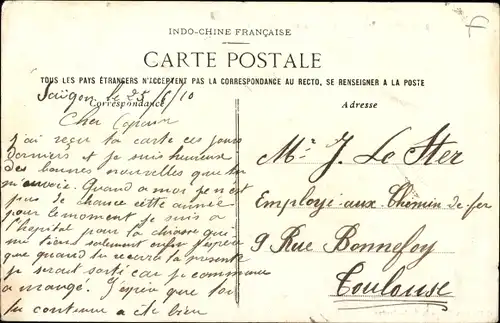 INDO-CHINE FRANÇAISE
CARTE POSTALE
TOUS LES PAYS ÉTRANGERS N'ACCEPTENT PAS LA CORRESPONDANCE AU RECTO, SE RENSEIGNER A LA POSTE
Saïgon le 25/6/10
Correspondance
Adresse
Cher
J'ai reçu ta carte ces jours
Derniers et je suis heureuse
des bonnes nouvelles que tu
m'envoie. Quand a moi je n'est
pas de chance cette année
pour le moment je suis a
l'hopital pour la
me tiens salement enfin j'espère
que quand tu recevra la presente
je serait sorti car je commence
a J'espère que
tu continue a ete bien
Mr. J. Le Ster
Employé aux Chemin de fer
9 Rue Bonnefoy
Toulouse